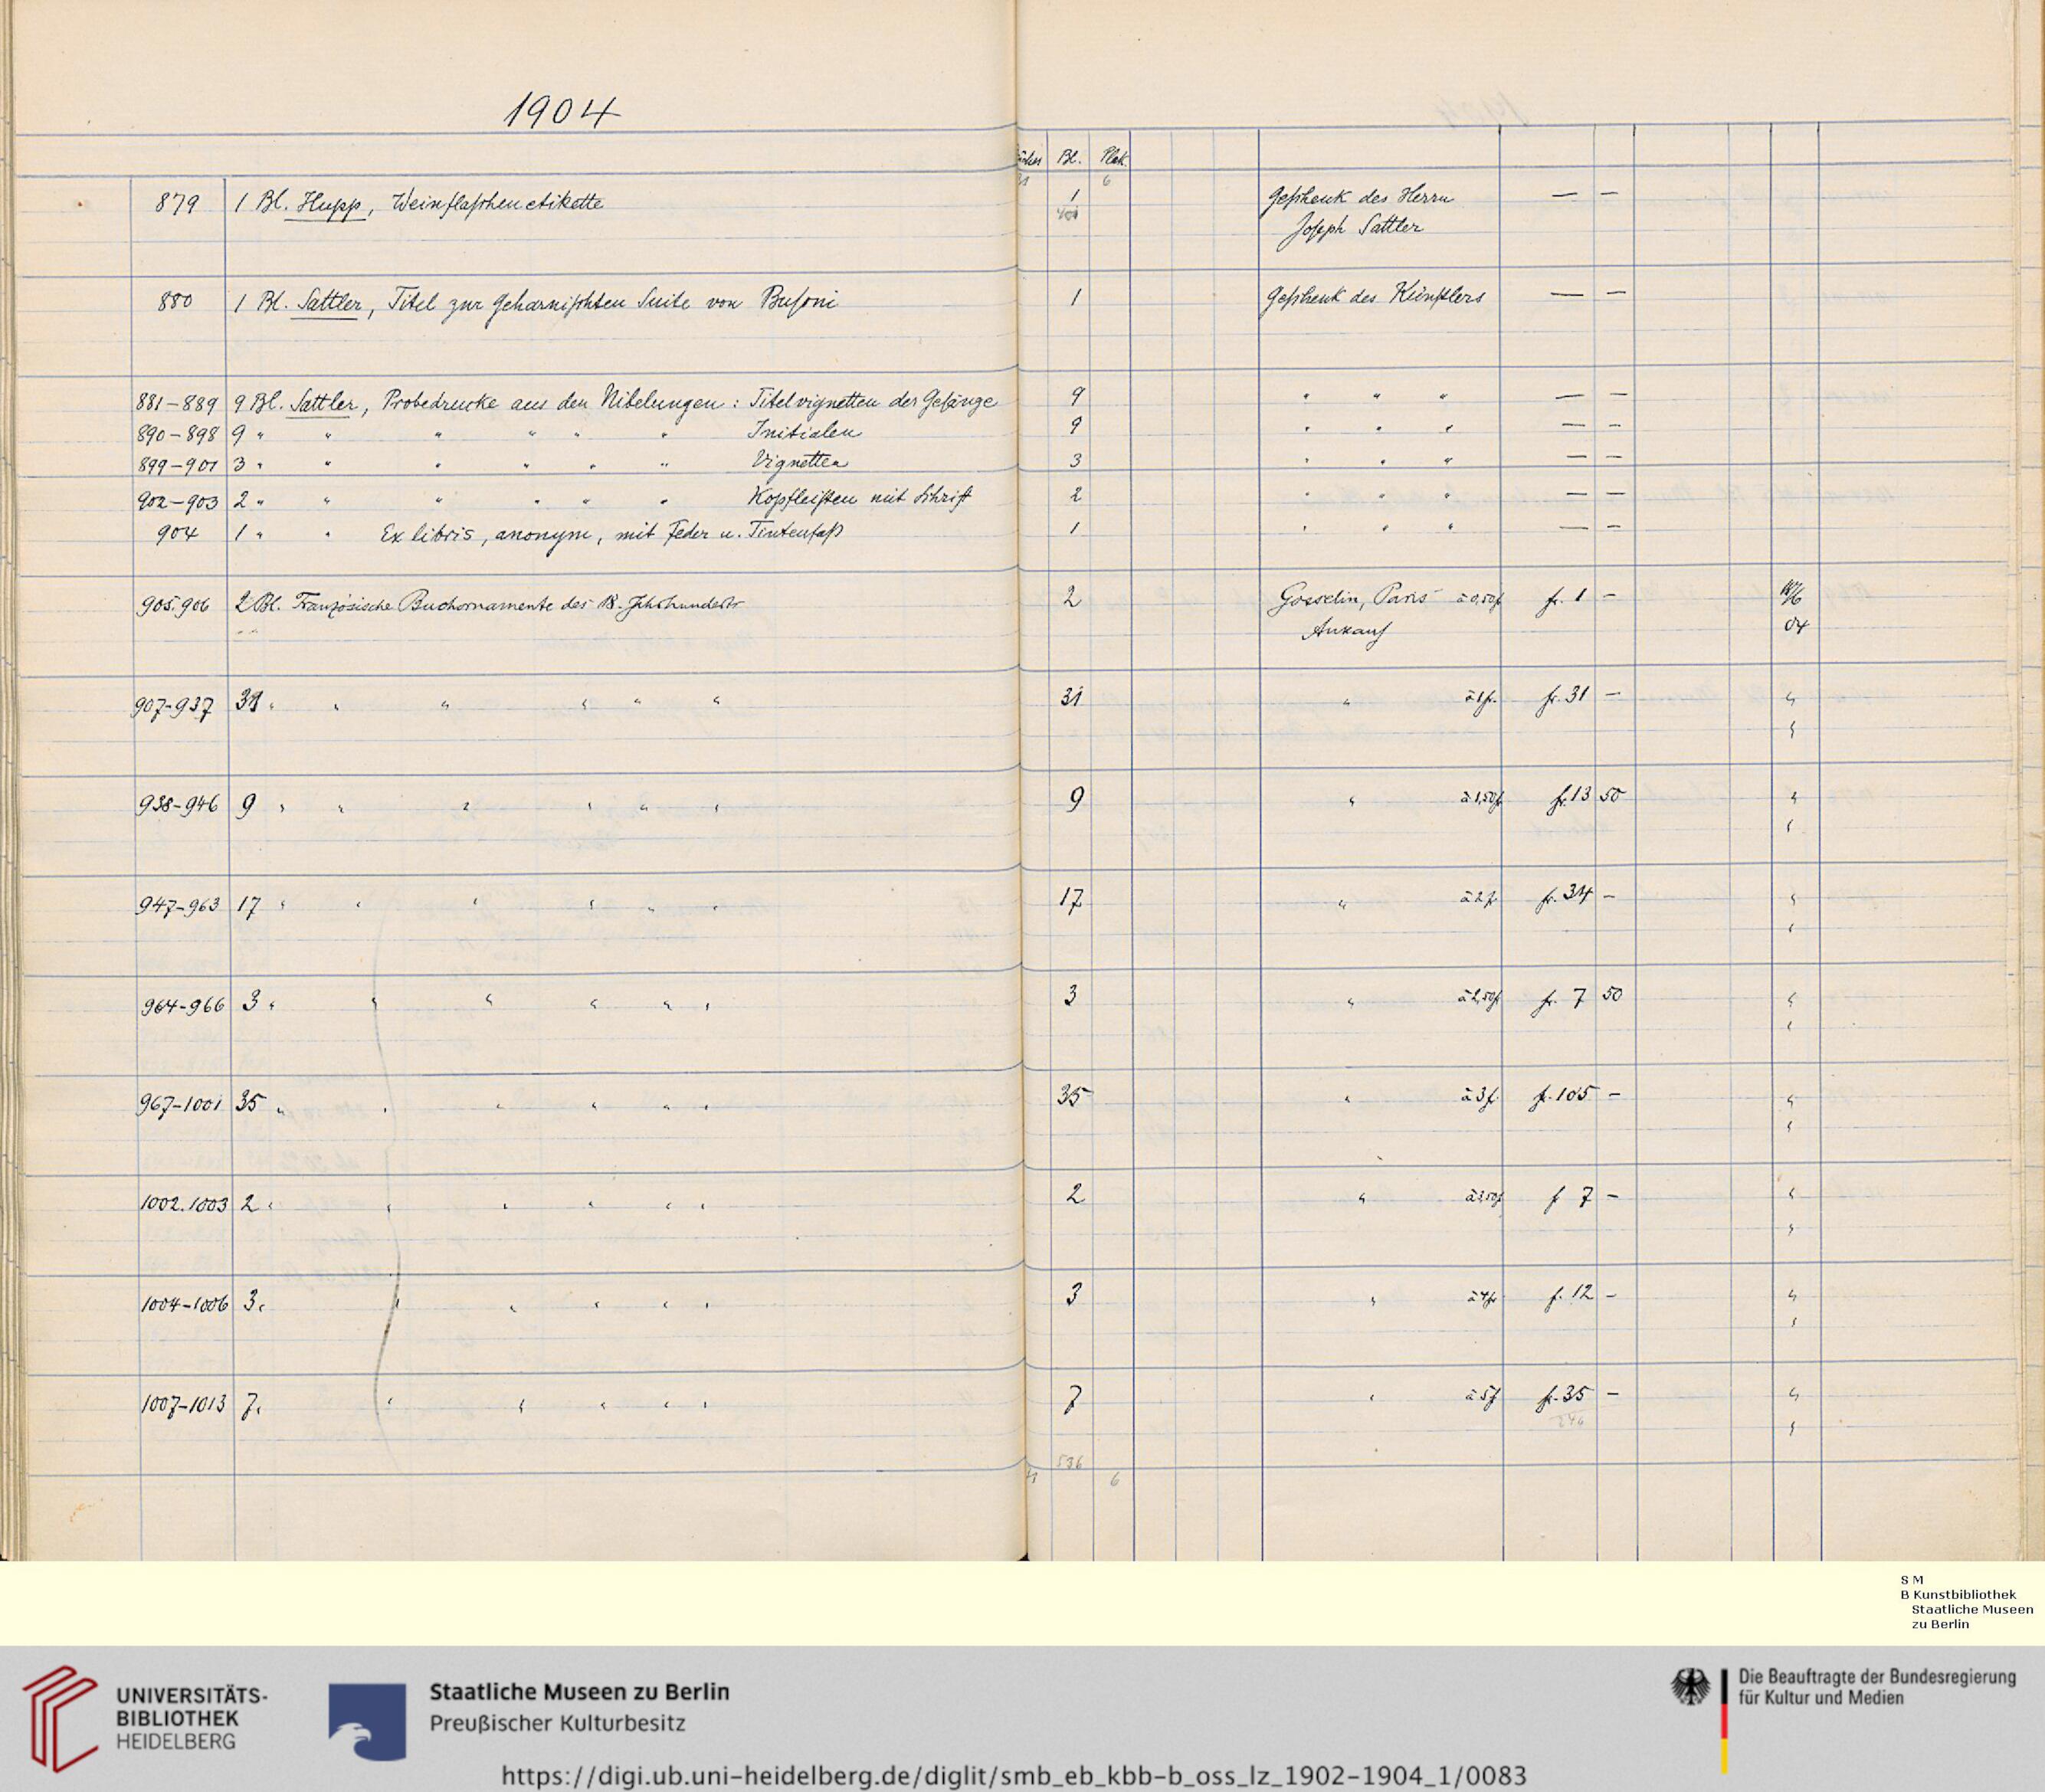 1904
Bl. Plak.
6
879 1 Bl. Hupp, Weinflaschenetikette 1 Geschenk des Herrn — —
Joseph Sattler
880 1 Bl. Sattler, Titel zur Geharnischten Suite von Busoni 1 Geschenk des Künstlers — —
881–889 9 Bl. Sattler, Probedrucke aus den Nibelungen: Titelvignetten der Gesänge 9 " " " — —
890–898 9 " " " " " " Initialen 9 " " " — —
899–901 3 " " " " " " Vignetten 3 " " " — —
902–903 2 " " " " " " Kopfleisten mit Schrift 2 " " " — —
904 1 " " Ex libris, anonym, mit Feder u. Tintenfaß 1 " " " — —
905.906 2 Bl. Französische Buchornamente des 18. Jahrhunderts 2 Gosselin, Paris à 0,50 f fr. 1 –
Ankauf 04
907–937 31 " " " " " " 31 " à 1 fr. fr. 31 – "
"
938–946 9 " " " " " " 9 " à 1,50 f fr. 13 50 "
"
947–963 17 " " " " " " 17 " à 2 f fr. 34 – "
"
964–966 3 " " " " " " 3 " à 2,50 f fr. 7 50 "
"
967–1001 35 " " " " " " 35 " à 3 f fr. 105 – "
"
1002.1003 2 " " " " " " 2 " à 3,50 f f 7 – "
"
1004–1006 3 " " " " " " 3 " à 4 fr f. 12 – "
"
1007–1013 7 " " " " " " 7 " à 5 f fr. 35 – "
246 "
536
6
S M
B Kunstbibliothek
Staatliche Museen
zu Berlin
UNIVERSITÄTS-
BIBLIOTHEK
HEIDELBERG
Staatliche Museen zu Berlin
Preußischer Kulturbesitz
Die Beauftragte der Bundesregierung
für Kultur und Medien
https://digi.ub.uni-heidelberg.de/diglit/smb_eb_kbb-b_oss_lz_1902-1904_1/0083